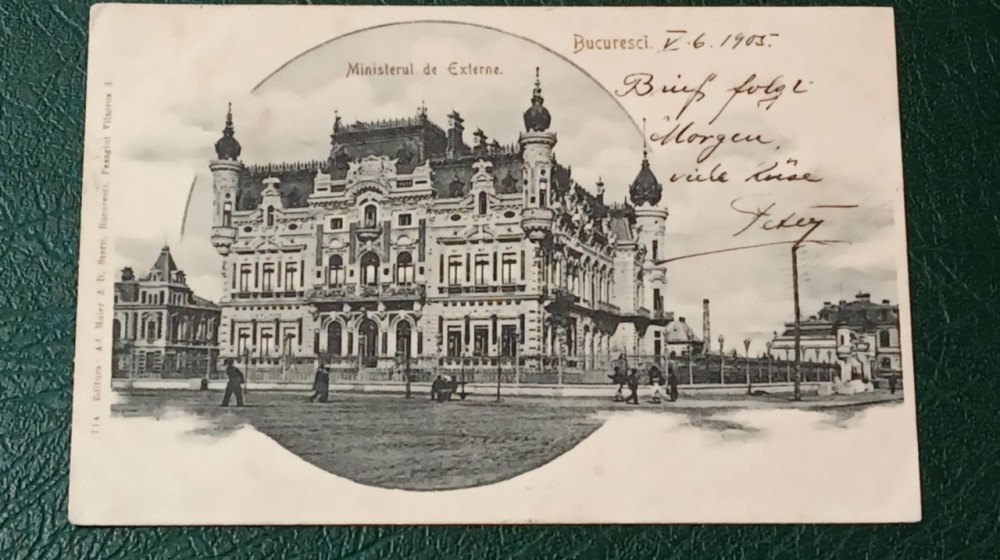 Bucuresci. V. 6. 1905.
Ministerul de Externe.
Brief folgt
Morgen,
viele Küsse
Peter
714 Editura Ad. Maier & D. Stern, Bucuresci, Pasagiul Vilacros 1.